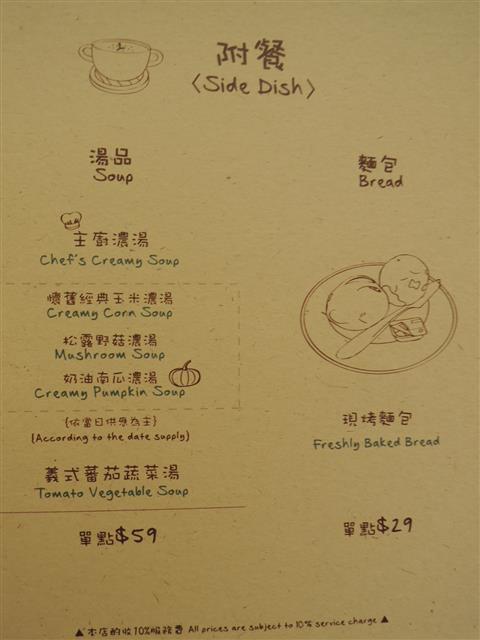 附餐
〈Side Dish〉
湯品
Soup
主廚濃湯
Chef's Creamy Soup
懷舊經典玉米濃湯
Creamy Corn Soup
松露野菇濃湯
Mushroom Soup
奶油南瓜濃湯
Creamy Pumpkin Soup
{依當日供應為主}
(According to the date supply)
義式蕃茄蔬菜湯
Tomato Vegetable Soup
單點$59
麵包
Bread
現烤麵包
Freshly Baked Bread
單點$29
▲本店酌收10%服務費 All prices are subject to 10% service charge▲